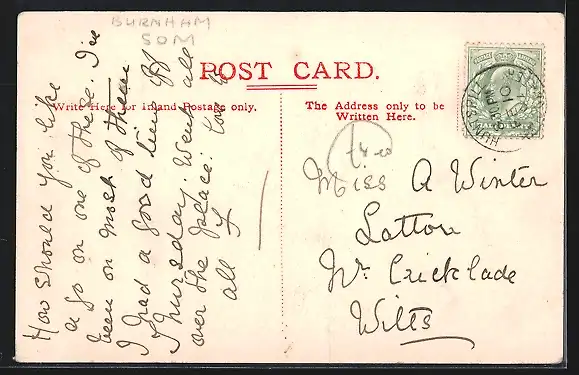 BURNHAM
SOM
POST CARD.
Write Here for Inland Postage only.
The Address only to be
Written Here.
How should you like
a go on one of these. I've
been on most of them
I had a good time
Thursday. Went all
over the place. Love to
all
£4.00
Miss A Winter
Latton
Nr. Cricklade
Wilts